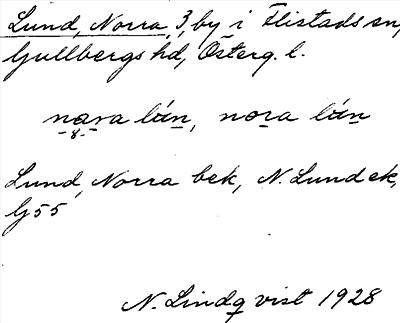 Lund, Norra, 3, by i Flistads sn,
Gullbergs hd, Österg. l.
nara lán, nora lán
Lund, Norra bek, N. Lund ek,
G 55
N. Lindqvist 1928